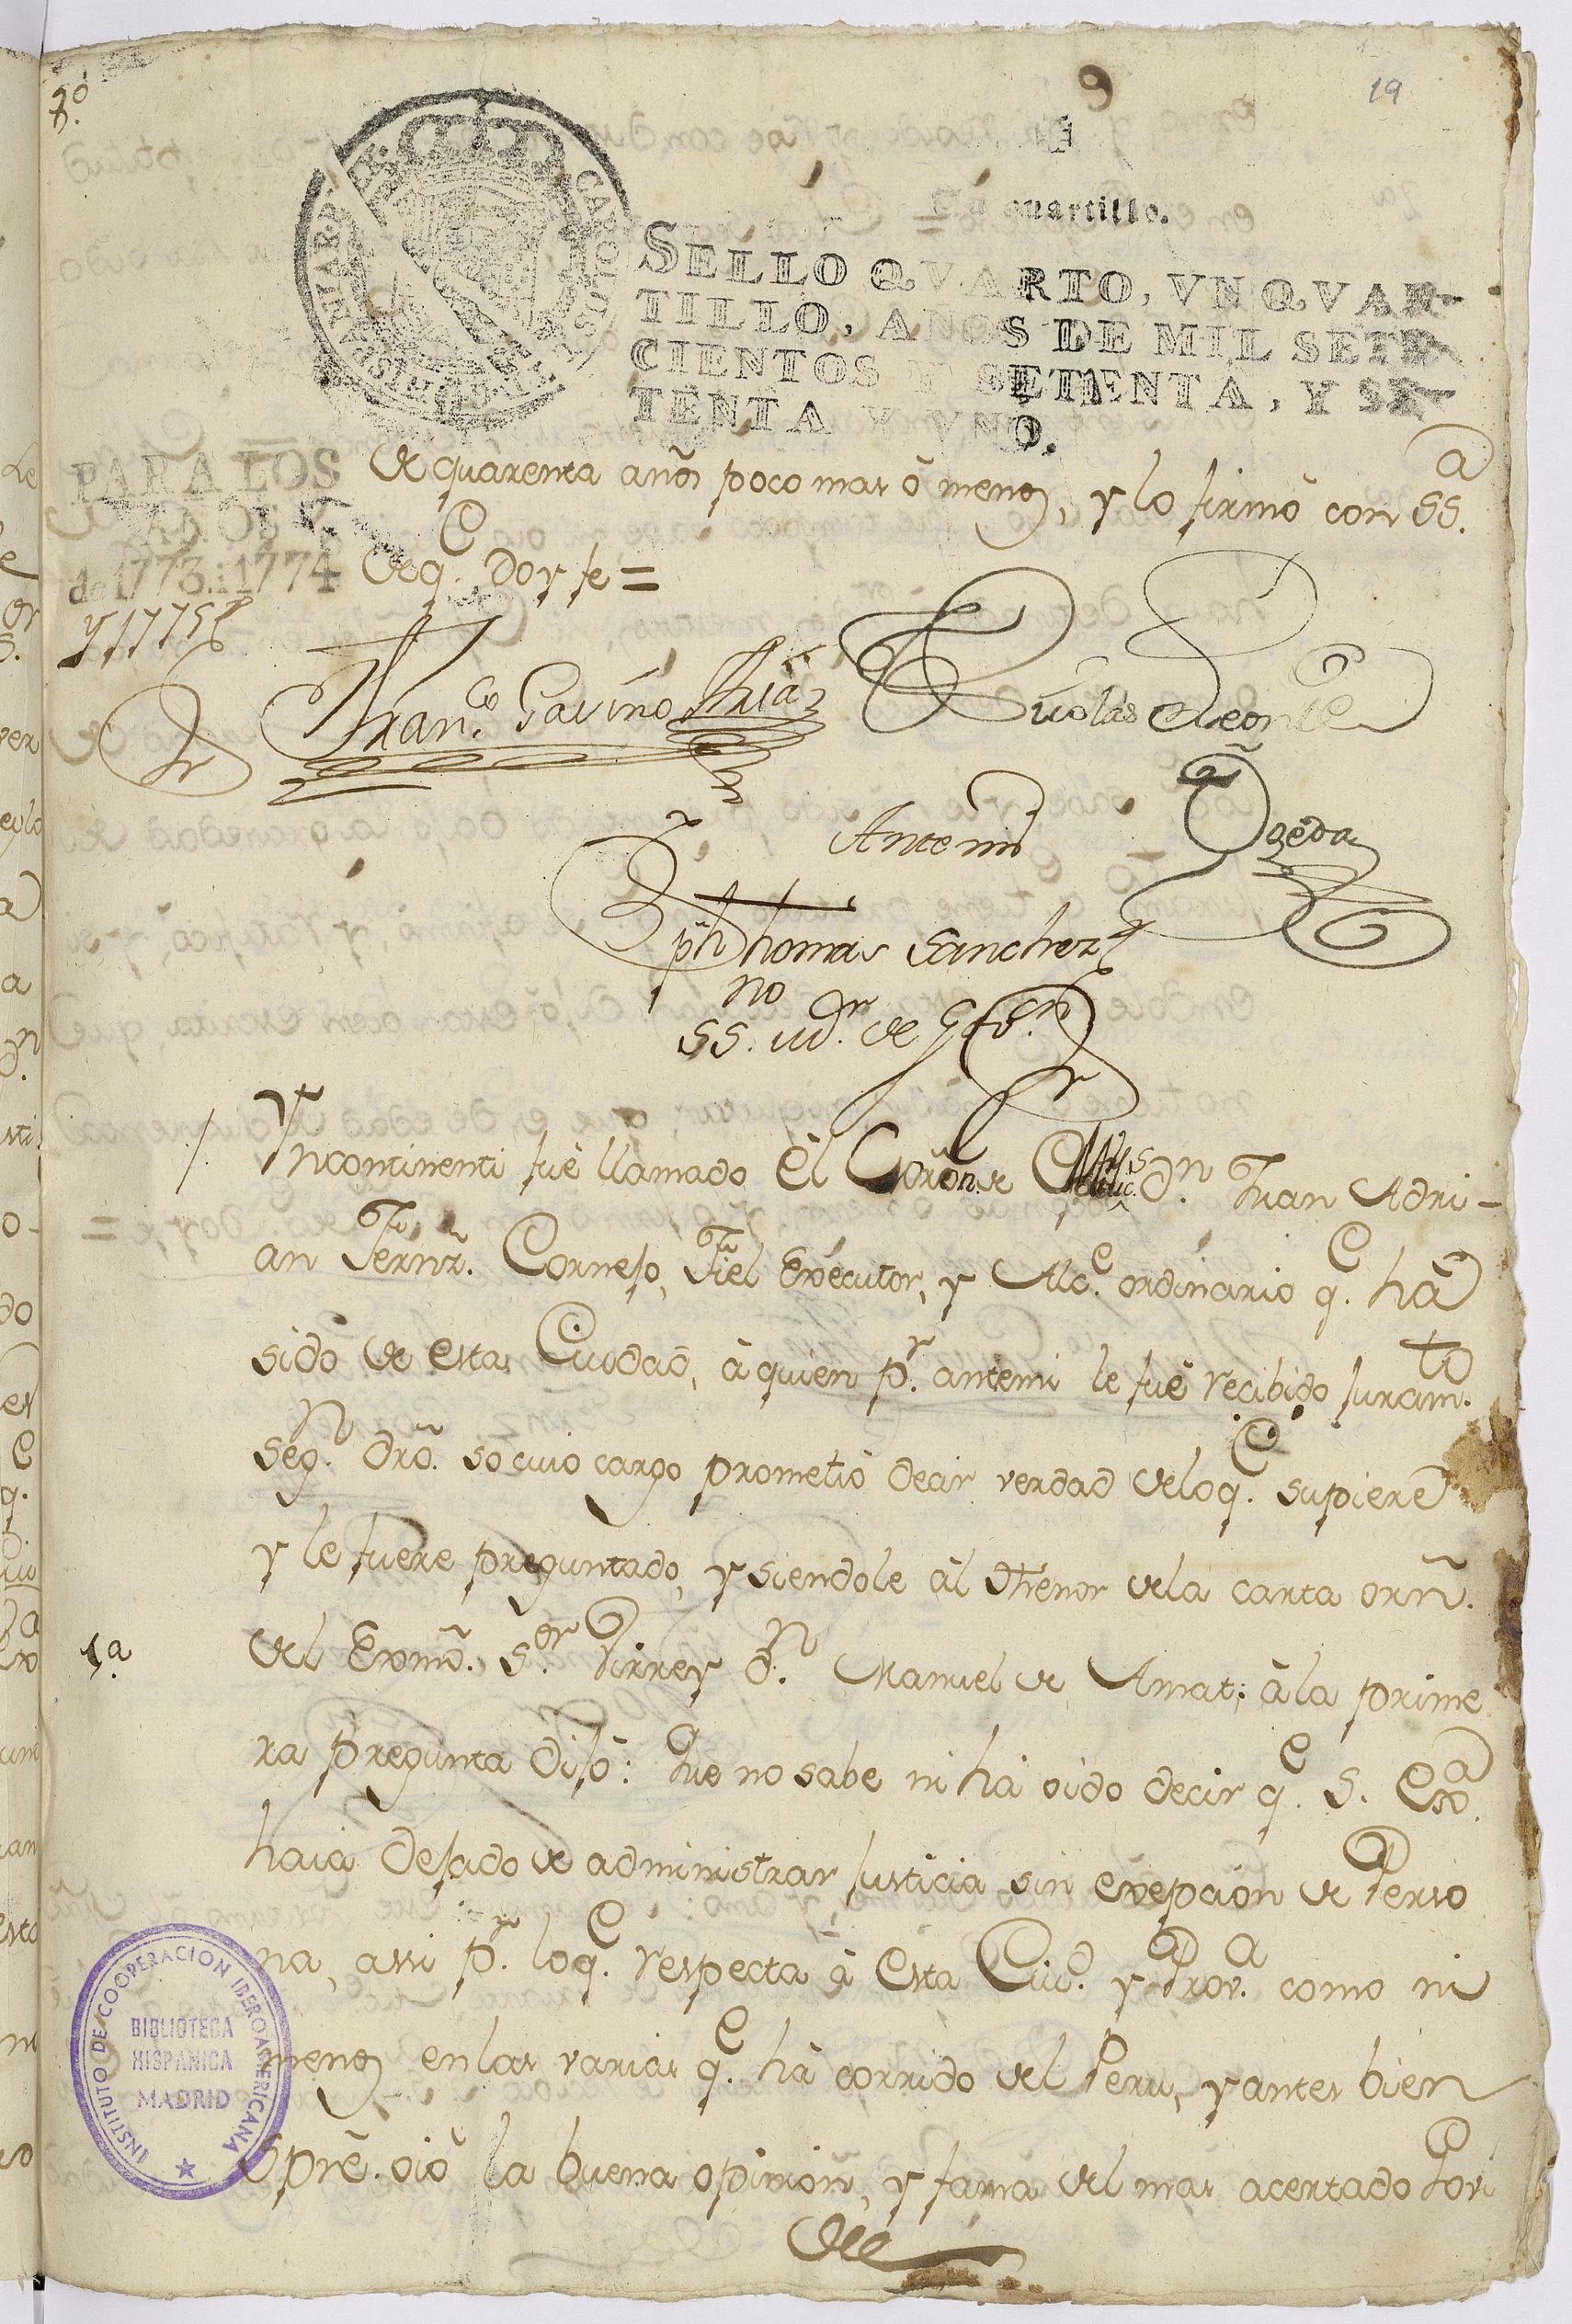 9
19
Un quartillo.
SELLO QVARTO, VN QVAR-
TILLO, AÑOS DE MIL SETE-
CIENTOS Y SETENTA, Y SE-
TENTA Y VNO.
PARA LOS
AÑOS
de 1773. i 1774
y 1775
de quarenta añõs poco mas ô menos, y lo firmô con SS.ª
deq.e doy fe =
Fran.co Gavino Nicolas de
Ante mi Ogeda
Jph Thomas Sanchez
no
SS. de Gov.n
Yncontinenti fuê llamado êl Coron.l de Mils. Dn. Juan Adri-
an Fernz. Cornejo, Fiel Executor, y Alc.e ordinario q.e hâ
sido de esta Ciudad, â quien p.r antemi le fuê recibido juram.to
seg.n drô. so cuio cargo prometiô decir verdad deloq.e supiere
y le fuere preguntado, y siendole âl thenor dela carta orñ.
1.ª
del Exmô. S.or Virrey D.n Manuel de Amat; âla prime
ra pregunta Dijô: Que no sabe ni hâ oido decir q.e S. Exª.
haia dejado de administrar Justicia sin exepcion de Perso
na, assi p.r loq.e respecta â esta Ciud. y Prov.ª como ni
menos enlas varias q.e hâ corrido del Peru, y antes bien
Spre. oiô la buena opinion, y fama del mas acertado Gov.
INSTITUTO DE COOPERACION IBEROAMERICANA
BIBLIOTECA
HISPANICA
MADRID